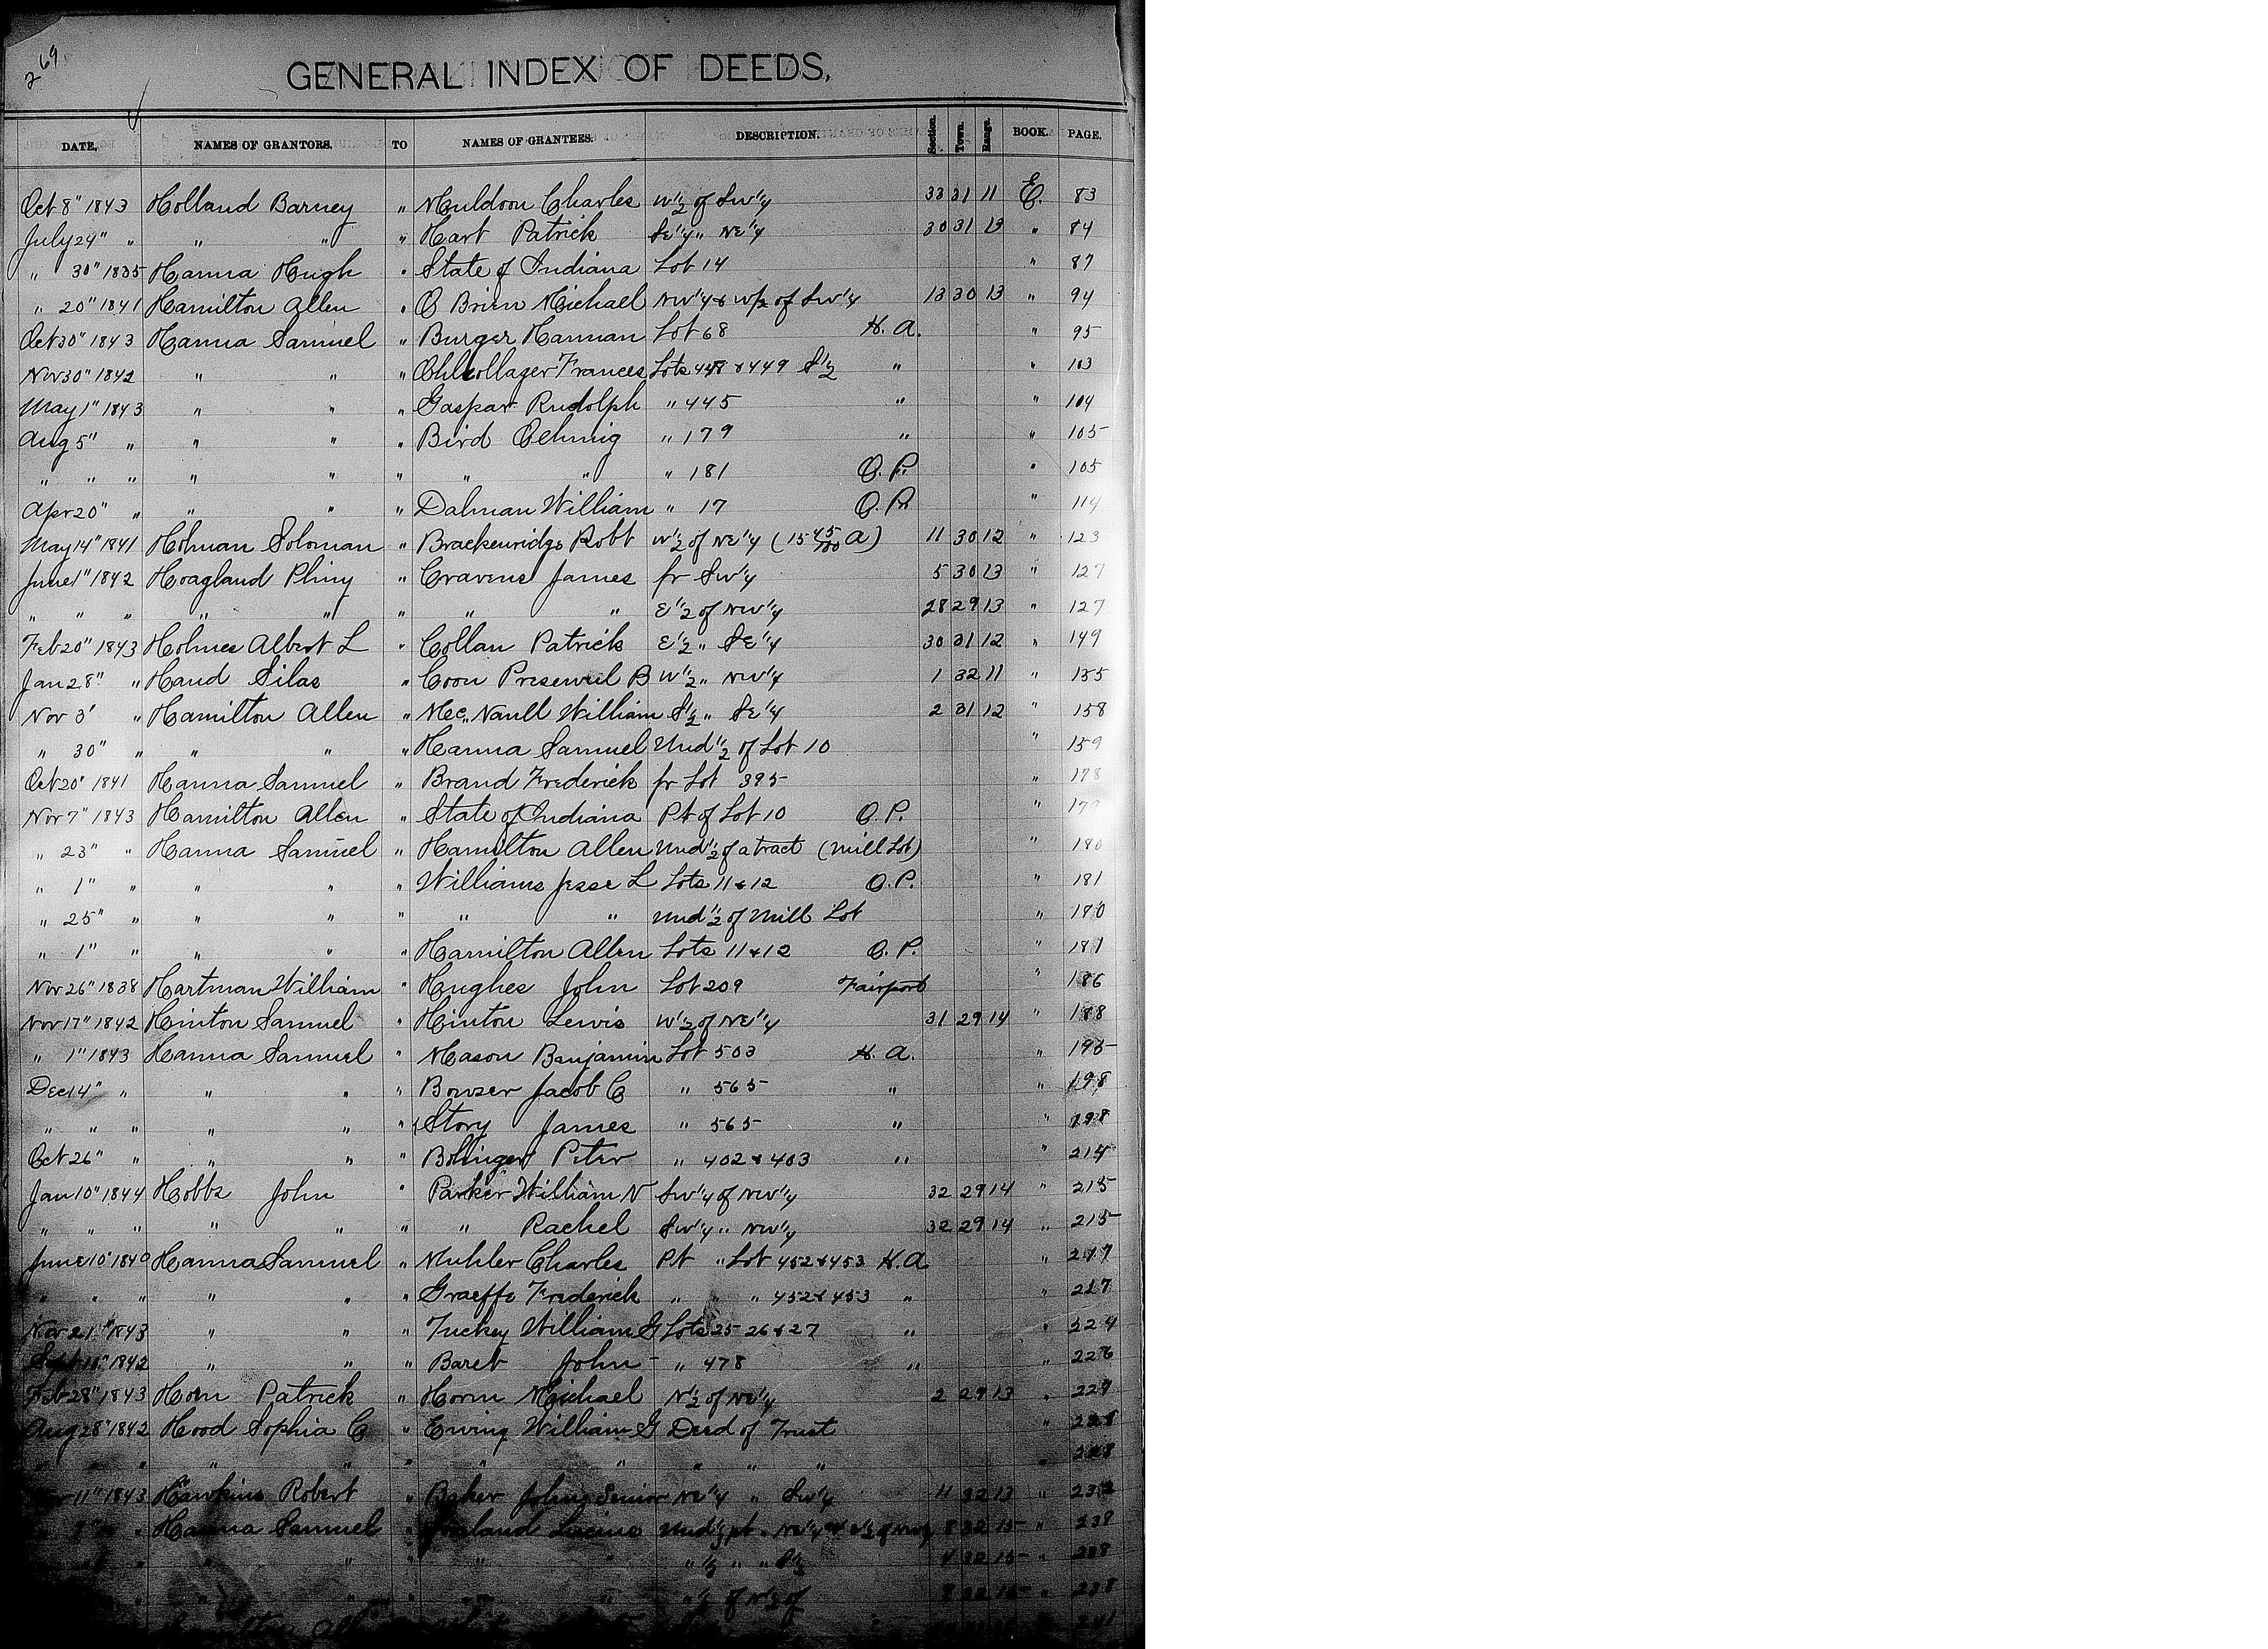 269
GENERAL INDEX OF DEEDS.
DATE. NAMES OF GRANTORS. TO NAMES OF GRANTEES. DESCRIPTION. Section. Town. Range. BOOK. PAGE.
Oct 8" 1843 Holland Barney " Muldoon Charles W 1/2 of SW 1/4 33 31 11 E. 83
July 24" " " " " Hart Patrick SE 1/4 " NE 1/4 30 31 13 " 84
" 30" 1835 Hanna Hugh " State of Indiana Lot 14 " 87
" 20" 1841 Hamilton Allen " O Brien Michael NW 1/4 & W/2 of SW 1/4 13 30 13 " 94
Oct 30" 1843 Hanna Samuel " Burger Hannan Lot 68 H. A. " 95
Nov 30" 1842 " " " Frances Lots 448 & 449 S 1/2 " " 103
May 1" 1843 " " " Gaspar Rudolph " 445 " " 104
Aug 5" " " " " Bird Oehmig " 179 " " 105
" " " " " " " " " 181 O. P. " 105
Apr 20" " " " " Dalman William " 17 O. P. " 114
May 14" 1841 Holman Soloman " Brackenridge Robt W 1/2 of NE 1/4 (15 45/100 A) 11 30 12 " 123
June 1" 1842 Hoagland Pliny " Cravens James fr SW 1/4 5 30 13 " 127
" " " " " " " " E 1/2 of NW 1/4 28 29 13 " 127
Feb 20" 1843 Holmes Albert L " Collan Patrick E 1/2 " SE 1/4 30 31 12 " 149
Jan 28" " Hand Silas " Coon B W 1/2 " NW 1/4 1 32 11 " 155
Nov 3' " Hamilton Allen " Mc Naull William S 1/2 " SE 1/4 2 31 12 " 158
" 30" " " " " Hanna Samuel Und 1/2 of Lot 10 " 159
Oct 20" 1841 Hanna Samuel " Brand Frederick fr Lot 395 " 178
Nov 7" 1843 Hamilton Allen " State of Indiana Pt of Lot 10 O. P. " 179
" 23" " Hanna Samuel " Hamilton Allen Und 1/2 of a tract (Mill Lot) " 180
" 1" " " " " Williams Jesse L Lots 11 & 12 O. P. " 181
" 25" " " " " " " Und 1/2 of Mill Lot " 180
" 1" " " " " Hamilton Allen Lots 11 & 12 O. P. " 181
Nov 26" 1838 Hartman William " Hughes John Lot 209 Fairport " 186
Nov 17" 1842 Hinton Samuel " Hinton Lewis W 1/2 of NE 1/4 31 29 14 " 188
" 1" 1843 Hanna Samuel " Mason Benjamin Lot 503 H. A. " 195
Dec 14" " " " " Bowser Jacob C " 565 " " 198
" " " " " " Story James " 565 " " 198
Oct 26" " " " " Bollinger Peter " 402 & 403 " " 214
Jan 10" 1844 Hobbs John " Parker William N SW 1/4 of NW 1/4 32 29 14 " 215
" " " " " " " Rachel SW 1/4 " NW 1/4 32 29 14 " 215
June 10" 1840 Hanna Samuel " Muhler Charles Pt " Lot 452 & 453 H. A " 217
" " " " " " Graeffe Frederick " " " 452 & 453 " " 217
Nov 21" 1843 " " " Tuckey William G Lots 25 26 & 27 " " 224
Sept 1842 " " " Baret John " 478 " " 226
Feb 28" 1843 Horn Patrick " Horn Michael N 1/2 of NE 1/4 2 29 13 " 227
Aug 28" 1842 Hood Sophia C " Ewing William G Deed of Trust " 228
" " " " " " " " " " " " 228
11" 1843 Hawkins Robert " Baker John Senior NE 1/4 " SW 1/4 11 32 13 " 232
Hanna Samuel " Lucius Und 1/2 pt 8 32 15 " 238
" " " " " 1/2 " " 4 32 15 " 238
" " " " " 1/2 of N 1/2 of " 238
241